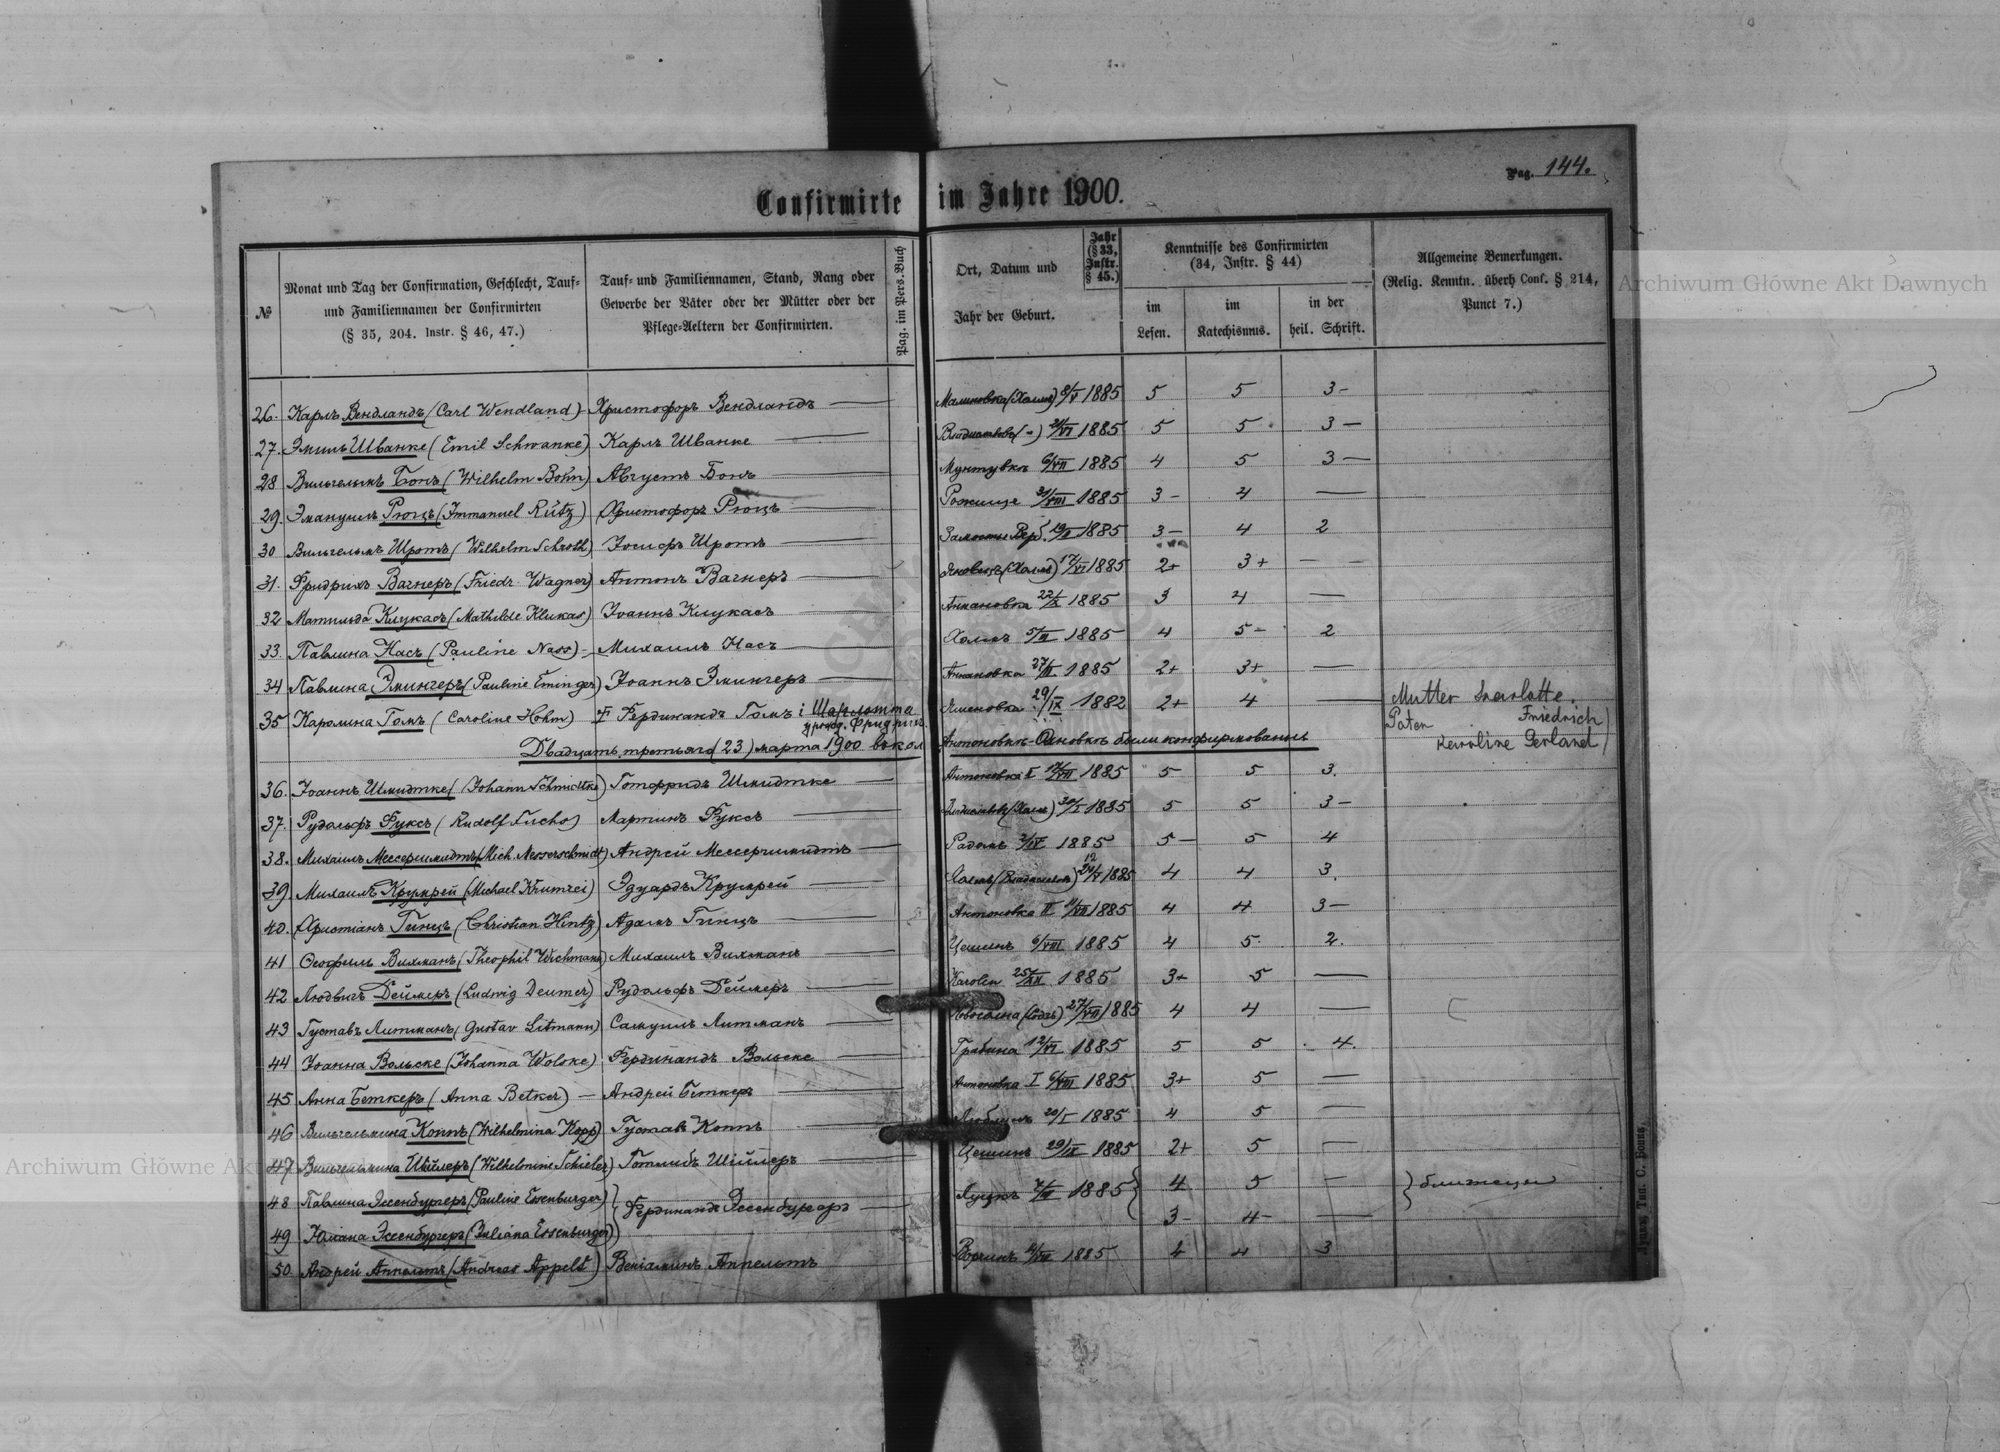 Confirmirte im Jahre 1900.
Pag. 144.
№
Monat und Tag der Confirmation, Geschlecht, Tauf-
und Familiennamen der Confirmirten
(§ 35, 204. Instr. § 46, 47.)
Tauf- und Familiennamen, Stand, Rang oder
Gewerbe der Väter oder der Mütter oder der
Pflege-Aeltern der Confirmirten.
Pag. im Pers.-Buch
Ort, Datum und
Jahr der Geburt.
Jahr
(§ 33,
Instr.
§ 45.)
Kenntnisse des Confirmirten
(34, Instr. § 44)
im
Lesen.
im
Katechismus.
in der
heil. Schrift.
Allgemeine Bemerkungen.
(Relig. Kenntn. überh Conf. § 214,
Punct 7.)
26. Карлъ Вендландъ (Carl Wendland) - Христофоръ Вендландъ — Малиновка (Холмъ) 8/V 1885 5 5 3 -
27. Эмиль Шванке (Emil Schwanke) Карлъ Шванке — 1885 5 5 3 —
28 Вильгельмъ Бонъ (Wilhelm Bohn) Августъ Бонъ — 6/VII 1885 4 5 3 —
29. Эмануилъ Рюцъ (Immanuel Rütz) Христофоръ Рюцъ — Рожище 31/VIII 1885 3 - 4 —
30 Вильгельмъ Шротъ (Wilhelm Schroth) Іосифъ Шротъ — 1885 3 — 4 2
31. Фридрихъ Вагнеръ (Friedr. Wagner) Антонъ Вагнеръ — (Холмъ) 17/VI 1885 2+ 3+ —
32 Матильда Клукасъ (Mathilde Klukas) Іоаннъ Клукасъ — 22/X 1885 3 4 —
33. Павлина Насъ (Pauline Nass) - Михаилъ Насъ — Холмъ 5/III 1885 4 5 - 2
34 Павлина Эмингеръ (Pauline Eminger) Іоаннъ Эмингеръ — 1885 2+ 3+ —
35 Каролина Гомъ (Caroline Hohm) Фердинандъ Гомъ і Шарлотта 29/IX 1882 2+ 4 —
урожд. Фридрихъ
Mutter Scarlotte.
Paten Friedrich
Karoline Gerland
Двадцать третьяго (23) марта 1900 въ кол Антоновкѣ-Основкѣ были конфирмованы
36. Іоаннъ Шмидтке (Johann Schmidtke) Готфридъ Шмидтке — Антоновка I 17/VII 1885 5 5 3.
37. Рудольфъ Фуксъ (Rudolf Fuchs) Мартинъ Фуксъ — (Холмъ) 30/I 1885 5 5 3 —
38. Михаилъ Мессершмидтъ (Mich. Messerschmidt) Андрей Мессершмидтъ — Радомъ 2/IV 1885 5 — 5 4
39. Михаилъ Крумрей (Michael Krumrei) Эдуардъ Крумрей — 1885 4 4 3.
40. Христіанъ Гинцъ (Christian Hintz) Адамъ Гинцъ — Антоновка II 1885 4 4 3 —
41 Ѳеофилъ Вихманъ (Theophil Wichmann) Михаилъ Вихманъ — Цешинъ 6/VIII 1885 4 5 2.
42 Людвигъ Деймеръ (Ludwig Deumer) Рудольфъ Деймеръ — Karolin 25/XII 1885 3+ 5 —
43 Густавъ Литманъ (Gustav Litmann) Самуилъ Литманъ — 27/VII 1885 4 4 —
44 Іоанна Вольске (Johanna Wolske) Фердинандъ Вольске — Грабина 12/VI 1885 5 5 4.
45 Анна Беткеръ (Anna Betker) — Андрей Беткеръ — Антоновка I 6/VIII 1885 3+ 5 —
46 Вильгельмина Коппъ (Wilhelmina Kopp) Густавъ Коппъ — Люблинъ 20/I 1885 4 5 —
47 Вильгельмина Шийлеръ (Wilhelmine Schieler) Готлибъ Шийлеръ — Цешинъ 29/IX 1885 2+ 5 —
48 Павлина Эссенбургеръ (Pauline Essenburger) } Фердинандъ Эссенбургеръ — Луцкъ 1885 } 4 5 — } близнецы
49 Юліана Эссенбургеръ (Juliana Essenburger) 3 - 4 - —
50 Андрей Аппельтъ (Andreas Appelt) Веніаминъ Аппельтъ 1885 4 4 3
Луцкъ, Тип. С. Бонкъ,
Archiwum Główne Akt Dawnych
Archiwum Główne Akt